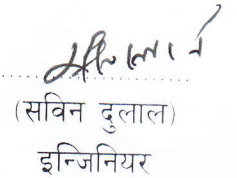 (सविन दुलाल)
इन्जिनियर